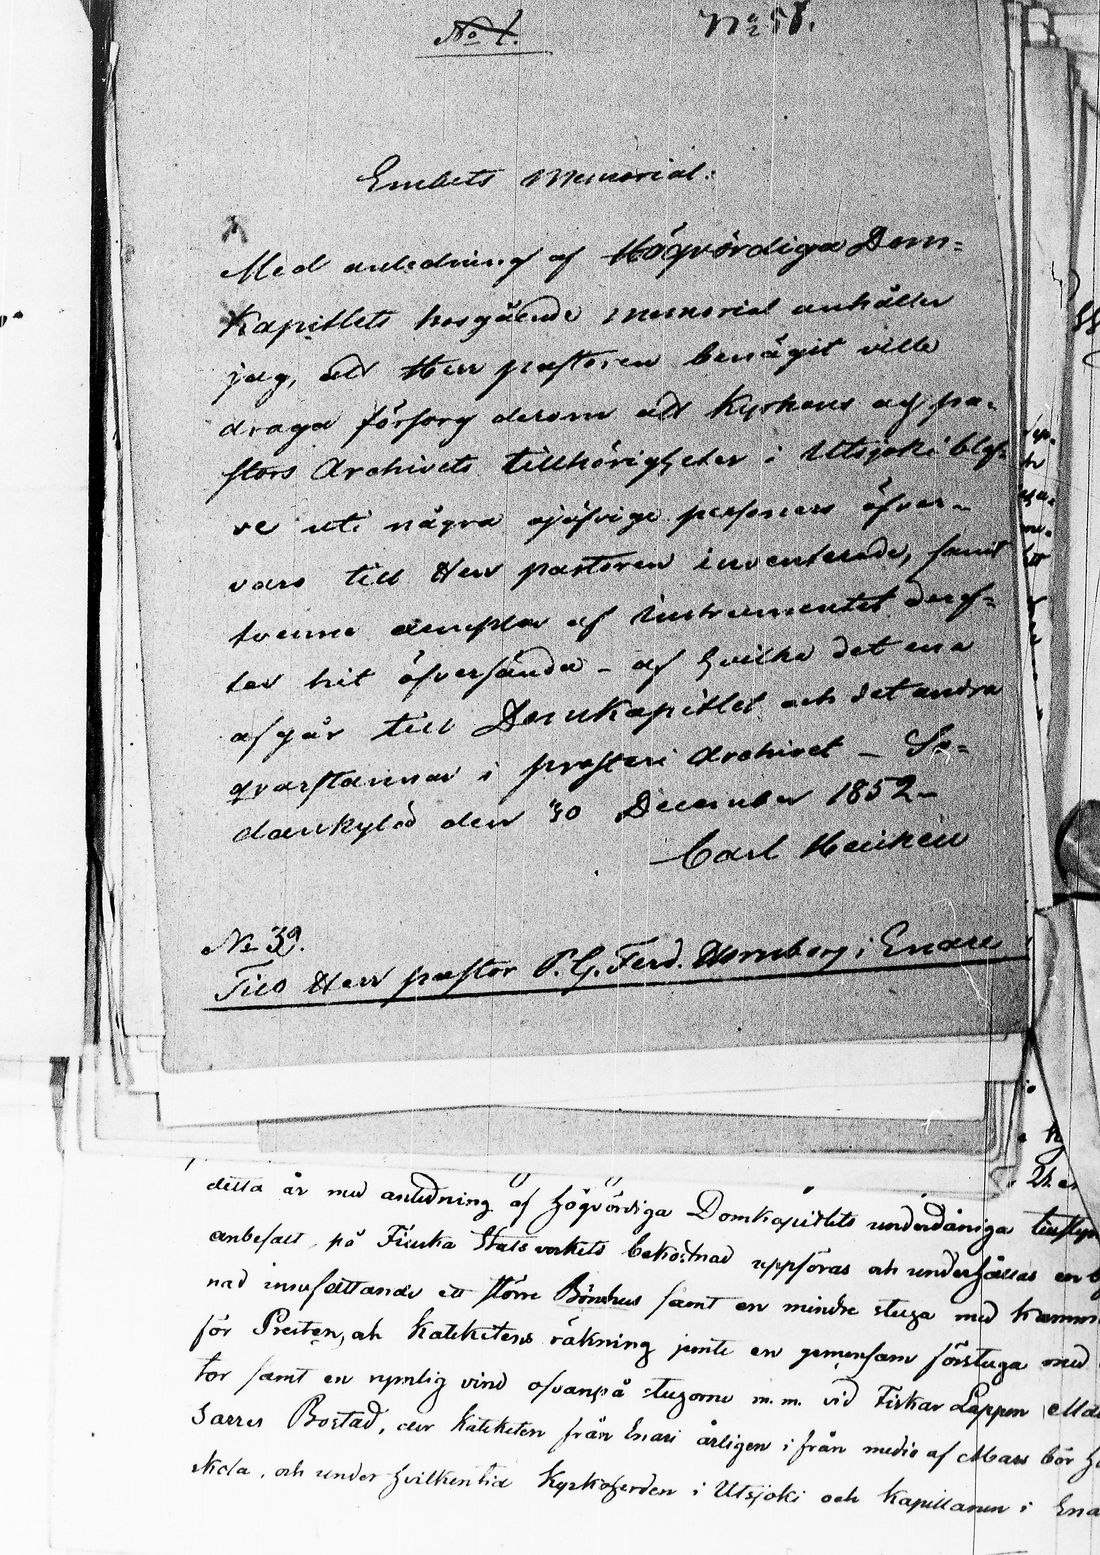 No 1.
No 58.
Embets Memorial:
Med anledning af Högvördiga Dom-
Kapitlets hosgående memorial anhåller
jag, att Herr pastoren benägit ville
draga försorg derom att Kyrkans och pa-
stors Archivets tillhörigheter i Utsjoki blef-
ve uti några ojäfvige personers öfver-
varo till Herr pastoren inventerade, samt
tvenne exemplar af instrumentet deref-
ter hit öfversända – af hvilka det ena
afgår till Domkapitlet och det andra
qvarstannar i prosteri Archivet – So-
dankylä den 30 December 1852 –
Carl Heikell
No 39.
Till Herr pastor P. G. Ferd. Hornborg i Enare
detta år med anledning af Högvördiga Domkapitlets underdåniga
anbefalt, på Finska Statsverkets bekostnad uppföras och underhållas en
nad innefattande ett större Bönehus samt en mindre stuga med
för Presten, och Kateketens räkning jemte en gemensam förstuga med
tor samt en rymlig vind ofvanpå stugorne m. m. vid Fiskar Lappen
Sarres Bostad, der Kateketen från Enari årligen ifrån medio af Mars bör
skola, och under hvilken tid Kyrkoherden i Utsjoki och Kapellanen i